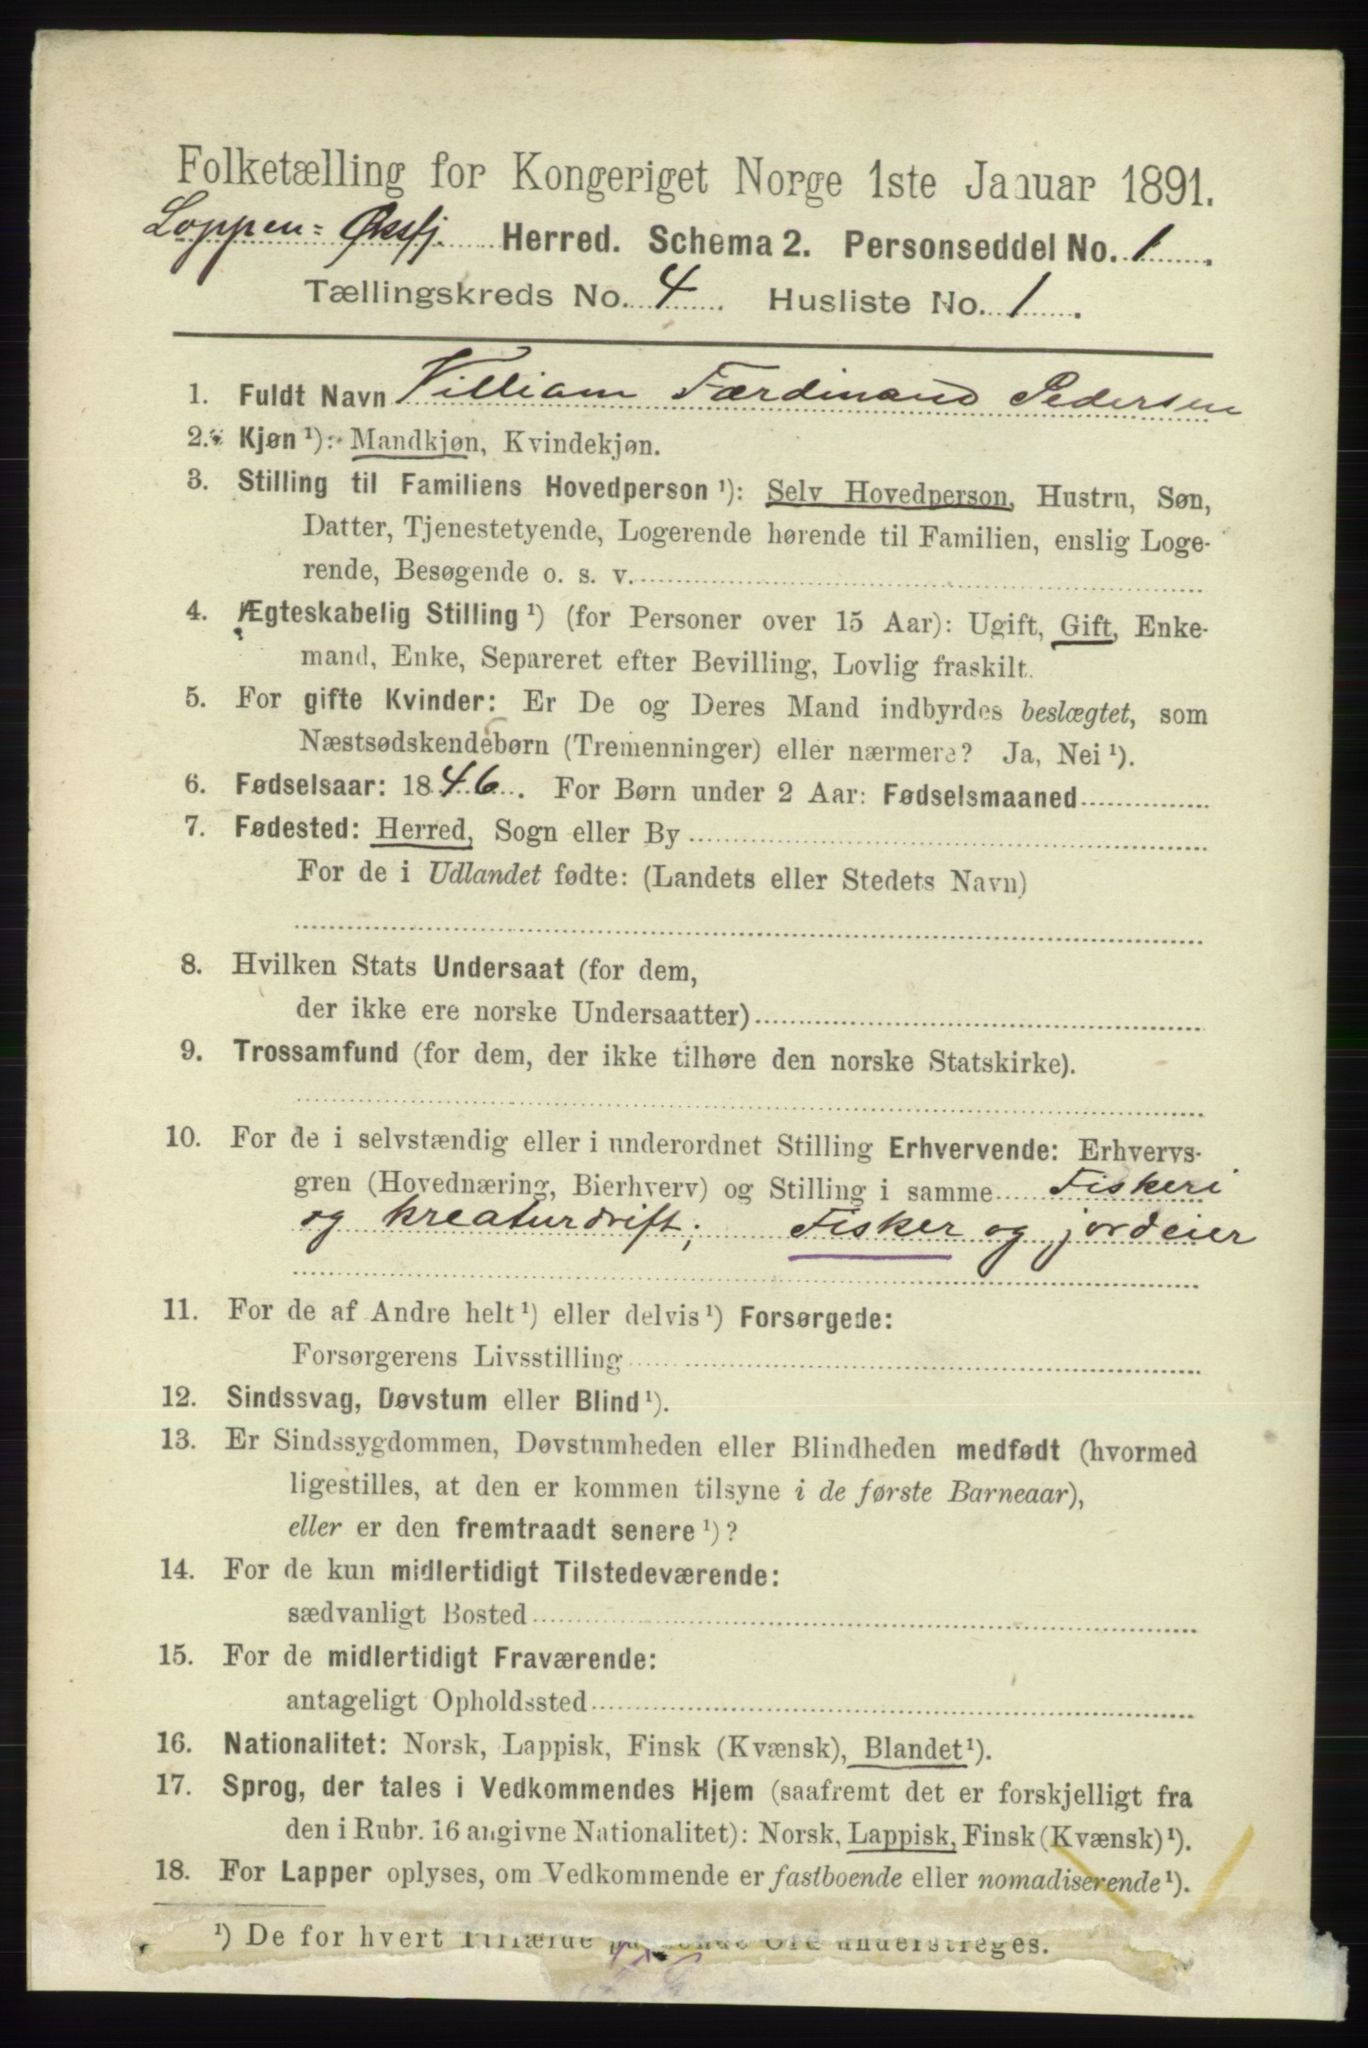 Folketælling for Kongeriget Norge 1ste Januar 1891.
Loppen = Øksfj. Herred. Schema 2. Personseddel No. 1.
Tællingskreds No. 4. Husliste No. 1.
1. Fuldt Navn Villiam Færdinand Pedersen
2. Kjøn ¹): Mandkjøn, Kvindekjøn.
3. Stilling til Familiens Hovedperson ¹): Selv Hovedperson, Hustru, Søn,
Datter, Tjenestetyende, Logerende hørende til Familien, enslig Loge-
rende, Besøgende o. s. v.
4. Ægteskabelig Stilling ¹) (for Personer over 15 Aar): Ugift, Gift, Enke-
mand, Enke, Separeret efter Bevilling, Lovlig fraskilt.
5. For gifte Kvinder: Er De og Deres Mand indbyrdes beslægtet, som
Næstsødskendebørn (Tremenninger) eller nærmere? Ja, Nei ¹).
6. Fødselsaar: 1846. For Børn under 2 Aar: Fødselsmaaned
7. Fødested: Herred, Sogn eller By
For de i Udlandet fødte: (Landets eller Stedets Navn)
8. Hvilken Stats Undersaat (for dem,
der ikke ere norske Undersaatter)
9. Trossamfund (for dem, der ikke tilhøre den norske Statskirke).
10. For de i selvstændig eller i underordnet Stilling Erhvervende: Erhvervs-
gren (Hovednæring, Bierhverv) og Stilling i samme Fiskeri
og kreaturdrift; Fisker og jordeier
11. For de af Andre helt ¹) eller delvis ¹) Forsørgede:
Forsørgerens Livsstilling
12. Sindssvag, Døvstum eller Blind ¹).
13. Er Sindssygdommen, Døvstumheden eller Blindheden medfødt (hvormed
ligestilles, at den er kommen tilsyne i de første Barneaar),
eller er den fremtraadt senere ¹)?
14. For de kun midlertidigt Tilstedeværende:
sædvanligt Bosted
15. For de midlertidigt Fraværende:
antageligt Opholdssted
16. Nationalitet: Norsk, Lappisk, Finsk (Kvænsk), Blandet ¹).
17. Sprog, der tales i Vedkommendes Hjem (saafremt det er forskjelligt fra
den i Rubr. 16 angivne Nationalitet): Norsk, Lappisk, Finsk (Kvænsk) ¹).
18. For Lapper oplyses, om Vedkommende er fastboende eller nomadiserende ¹).
¹) De for hvert Tilfælde passende Ord understreges.